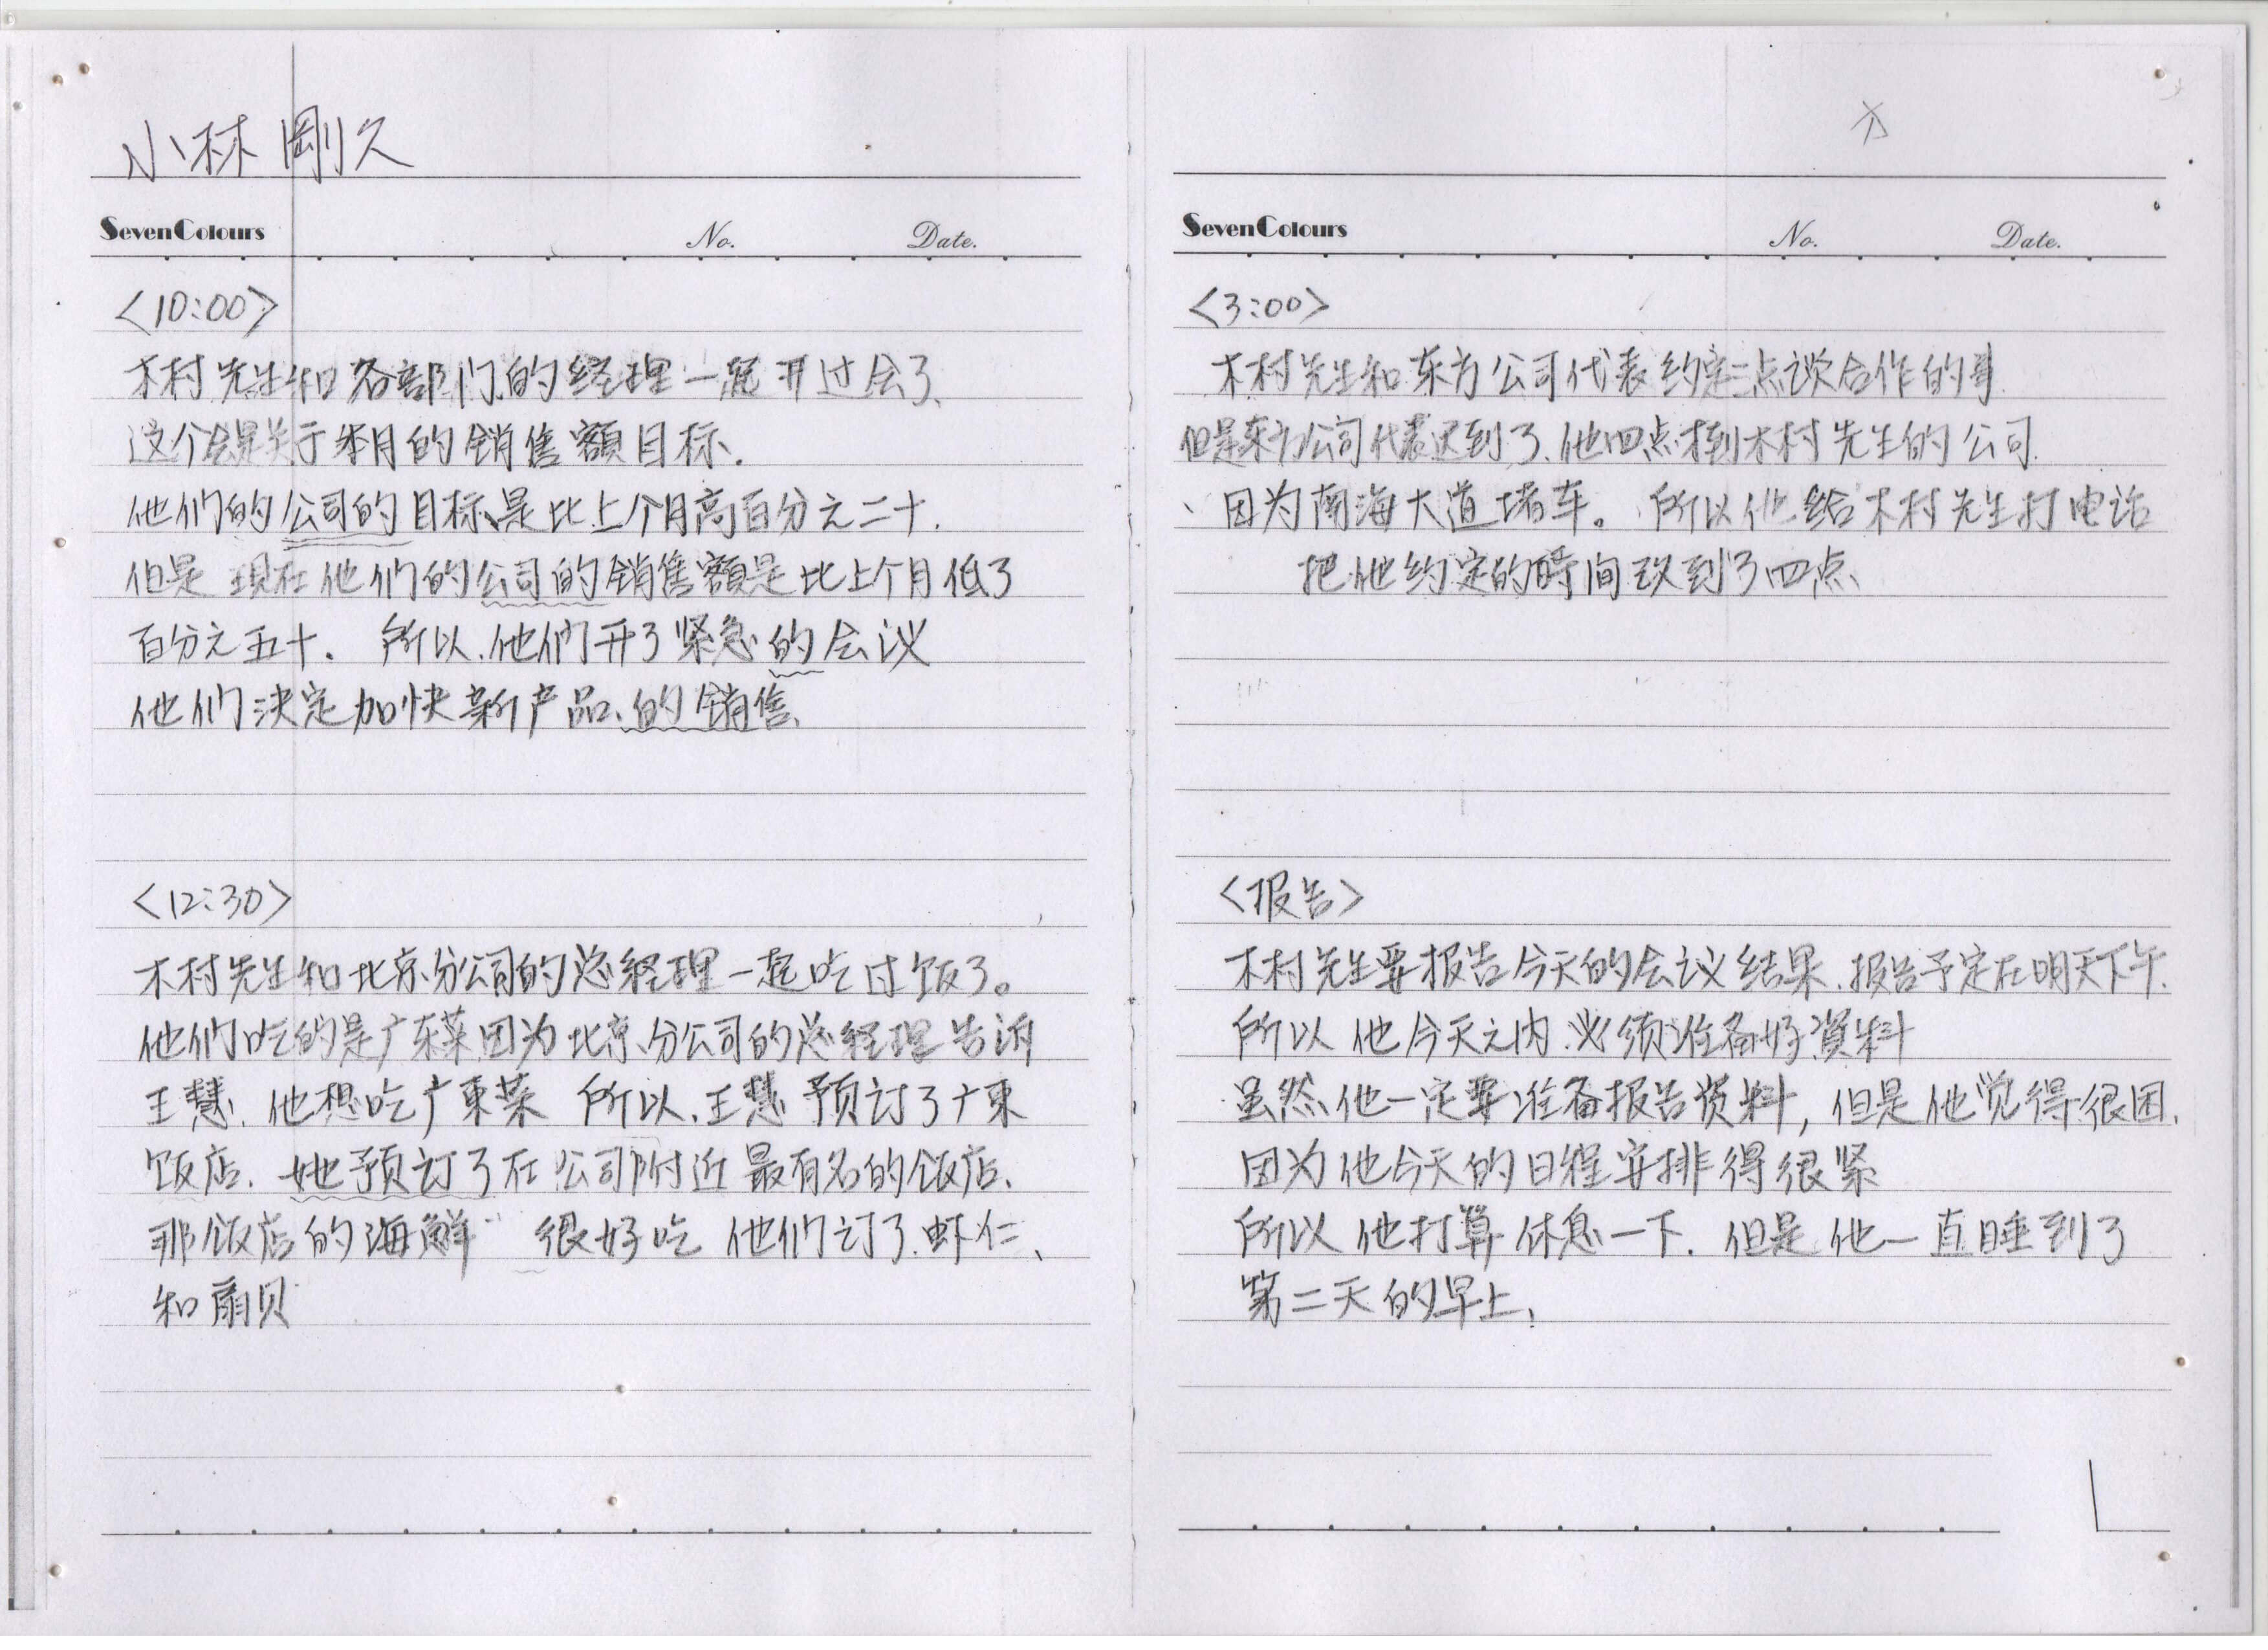 小林 剛久
SevenColours No. Date.
<10:00>
木村先生和各部门的经理一起开过会了、
这个会是关于本月的销售额目标.
他们的公司的目标是比上个月高百分之二十.
但是 现在他们的公司的销售额是比上个月低了
百分之五十. 所以、他们开了紧急的会议
他们决定加快新产品、的销售、
<12:30>
木村先生和北京分公司的总经理一起吃过饭了。
他们吃的是广东菜因为北京分公司的总经理告诉
王慧、他想吃广東菜 所以、王慧预订了广東
饭店. 她预订了在公司附近最有名的饭店、
那饭店的海鮮 很好吃 他们订了、虾仁、
和扇贝
SevenColours No. Date.
<3:00>
木村先生和东方公司代表约定三点谈合作的事
但是东方公司代表迟到了、他四点才到木村先生的公司.
、因为南海大道堵车。所以他给木村先生打电话
把他约定的時间改到了四点、
<报告>
木村先生要报告今天的会议结果、报告予定在明天下午.
所以他今天之内必须准备好資料
虽然、他一定要准备报告资料, 但是他觉得很困.
因为他今天的日程安排得很紧
所以他打算休息一下. 但是他一直睡到了
第二天的早上.